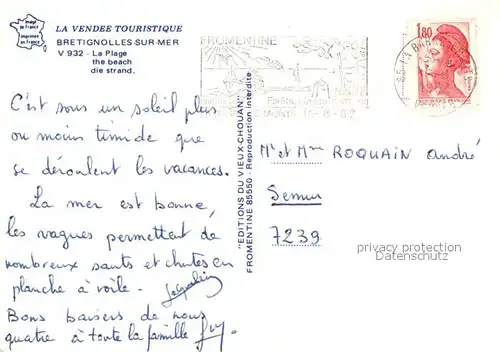 image de France
imprimée en France
LA VENDEE TOURISTIQUE
BRETIGNOLLES-SUR-MER
V 932 - La Plage
the beach
die strand.
C'est sous un soleil plus
ou moins timide que
se déroulent les vacances.
La mer est bonne,
les vagues permettent de
nombreux sauts et chutes en
planche à voile.
Jacqueline
Bons baisers de nous
quatre à toute la famille
Guy.
"EDITIONS DU VIEUX-CHOUAN"
FROMENTINE 85550 - Reproduction interdite
FROMENTINE
1,80
Mr et Mme ROQUAIN andré
Semur
7239
privacy protection
Datenschutz